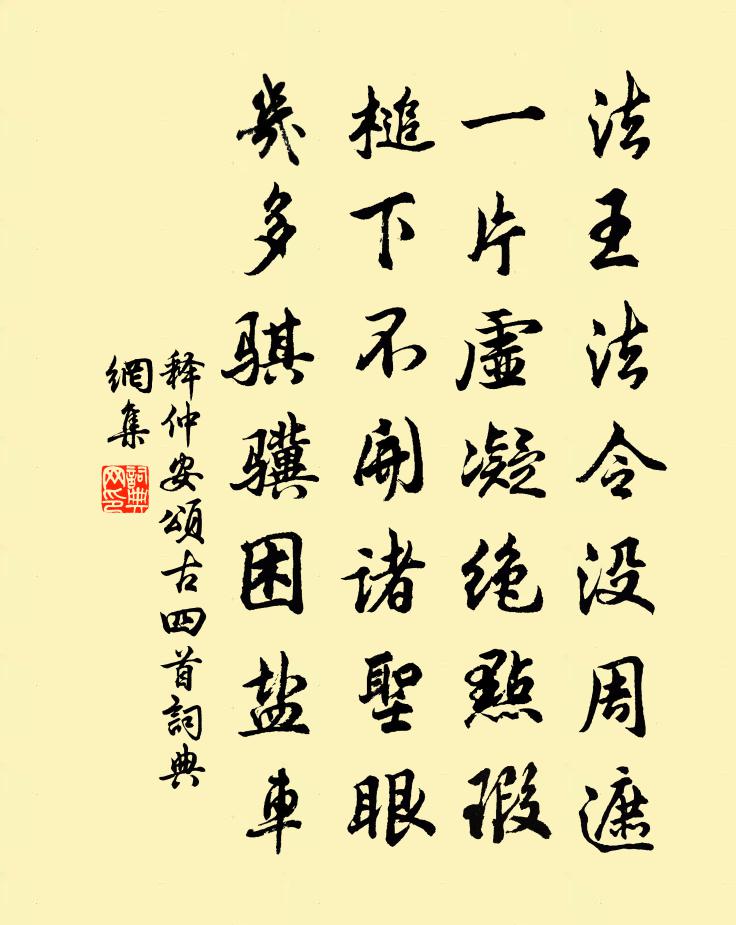 法王法令没周遮
一片虚凝绝點瑕
槌下不開诸聖眼
幾多骐骥困盐車
释仲安頌古四首詞典
網集
詞典
网印